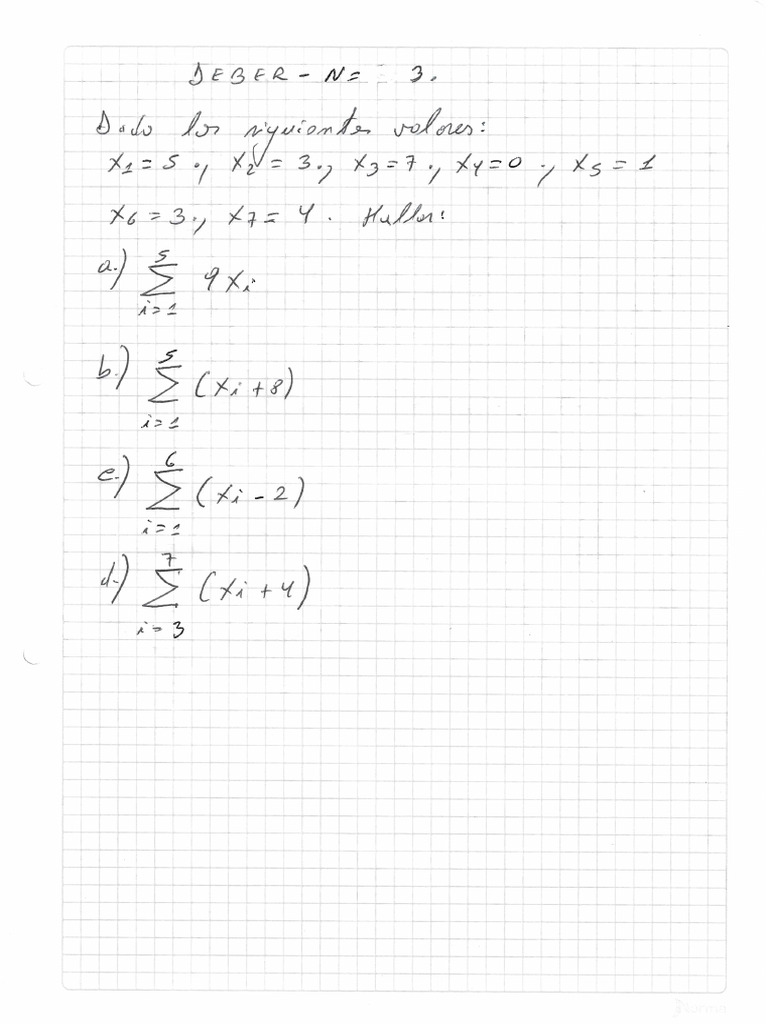 DEBER - N= 3.
Dado los siguientes valores:
X1 = 5 ., X2 = 3 ., X3 = 7 ., X4 = 0 ., X5 = 1
X6 = 3 ., X7 = 4 . Hallar:
a.) 5∑i=1 9Xi
b.) 5∑i=1 (Xi + 8)
c.) 6∑i=1 (Xi - 2)
d.) 7∑i=3 (Xi + 4)
Norma